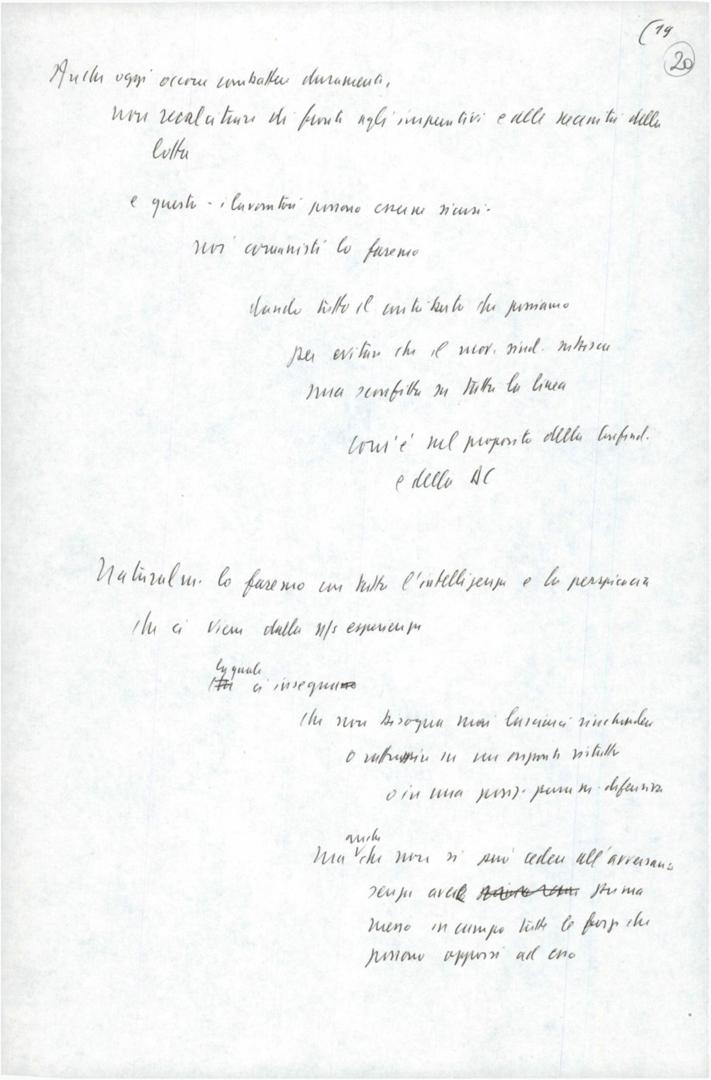 (19
20
Anche oggi occorre combattere duramente,
non recalcitrare di fronte agli imperativi e alle necessità della
lotta
e questo - i lavoratori possono esserne sicuri -
noi comunisti lo faremo
dando tutto il contributo che possiamo
per evitare che il mov. sind. subisca
una sconfitta su tutta la linea
com'è nel proposito della Confind.
e della DC
Naturalm. lo faremo con tutta l'intelligenza e la perspicacia
che ci viene dalla n/s esperienza
la quale
ci insegna
che non bisogna mai lasciarsi rinchiudere
o in un
o in una posiz. puram. difensiva
anche
Ma che non si può cedere all'avversario
senza avere prima
messo in campo tutte le forze che
possono opporsi ad esso